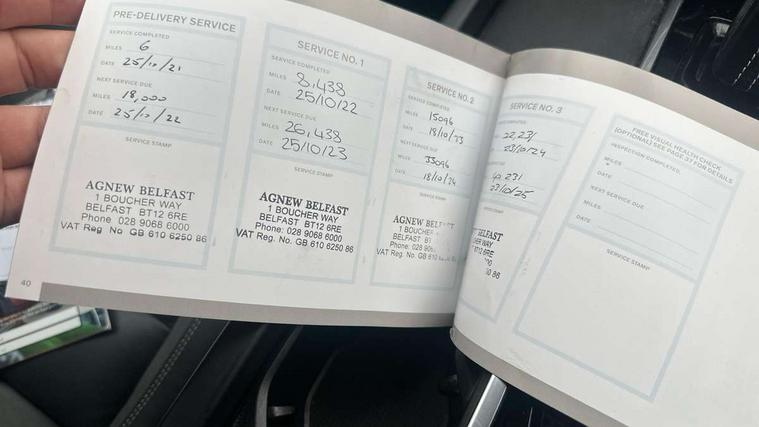 PRE-DELIVERY SERVICE
SERVICE COMPLETED
MILES 6
DATE 25/10/21
NEXT SERVICE DUE
MILES 18,000
DATE 25/10/22
SERVICE STAMP
AGNEW BELFAST
1 BOUCHER WAY
BELFAST BT12 6RE
Phone: 028 9068 6000
VAT Reg. No GB 610 6250 86
40
SERVICE NO. 1
SERVICE COMPLETED
MILES 8,438
DATE 25/10/22
NEXT SERVICE DUE
MILES 26,438
DATE 25/10/23
SERVICE STAMP
AGNEW BELFAST
1 BOUCHER WAY
BELFAST BT12 6RE
Phone: 028 9068 6000
VAT Reg. No. GB 610 6250 86
SERVICE NO. 2
SERVICE COMPLETED
MILES 15096
DATE 18/10/23
NEXT SERVICE DUE
MILES 33096
DATE 18/10/24
SERVICE STAMP
AGNEW
1 BOUCHER
BELFAST
Phone: 028
VAT Reg. No GB 610
SERVICE NO. 3
23/10/24
231
23/10/25
SERVICE STAMP
BELFAST
WAY
6RE
86
FREE VISUAL HEALTH CHECK
(OPTIONAL) SEE PAGE 37 FOR DETAILS
INSPECTION COMPLETED:
MILES
DATE
NEXT SERVICE DUE
MILES
DATE
SERVICE STAMP